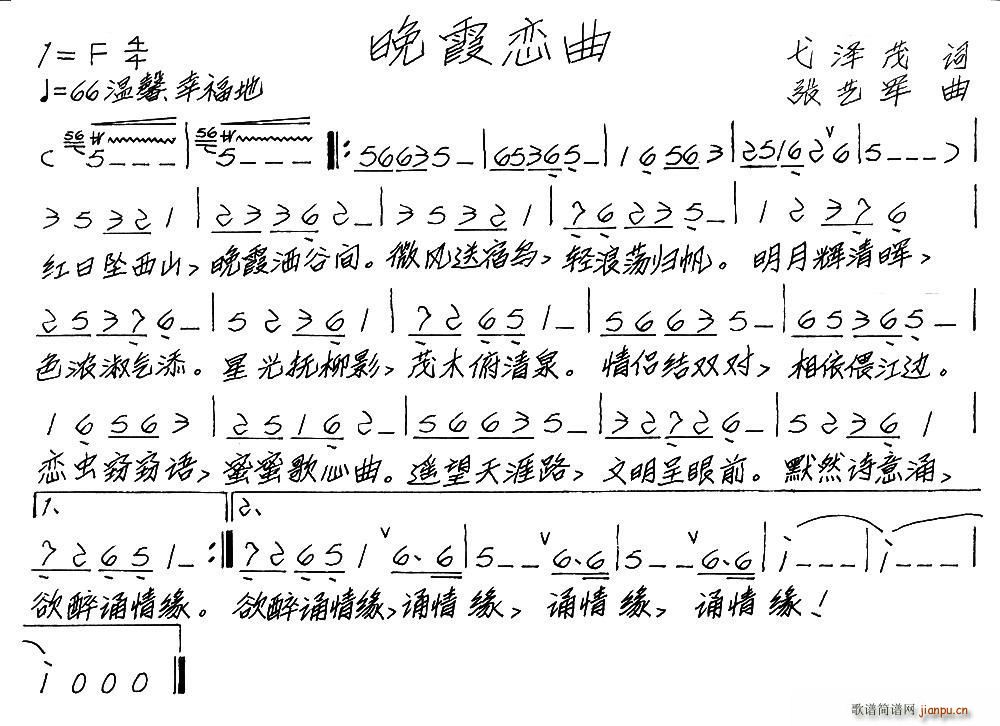 晚霞恋曲
1=F 4/4
♩=66 温馨、幸福地
弋泽茂 词
张艺军 曲
( 56 5 - - - | 56 5 - - - |: 56635 - | 65365 - | 16563 | 251626 | 5 - - - )
35321 | 23362 - | 35321 | 76235 - | 12376 |
红日坠西山、晚霞洒谷间。微风送宿鸟、轻浪荡归帆。明月辉清晖、
25376 - | 52361 | 72651 - | 56635 - | 65365 - |
色浓淑气添。星光抚柳影、茂木俯清泉。情侣结双对、相依偎江边。
16563 | 25162 - | 56635 - | 32726 - | 52361 |
恋虫窃窃语、蜜蜜歌心曲。遥望天涯路、文明呈眼前。默然诗意涌、
1、 2、
72651 - :| 72651 6·6 | 5 - - 6·6 | 5 - - 6·6 | i - - - | i - - -
欲醉诵情缘。欲醉诵情缘、诵情缘、诵情缘、诵情缘！
i 0 0 0 ‖
歌谱简谱网
jianpu.cn